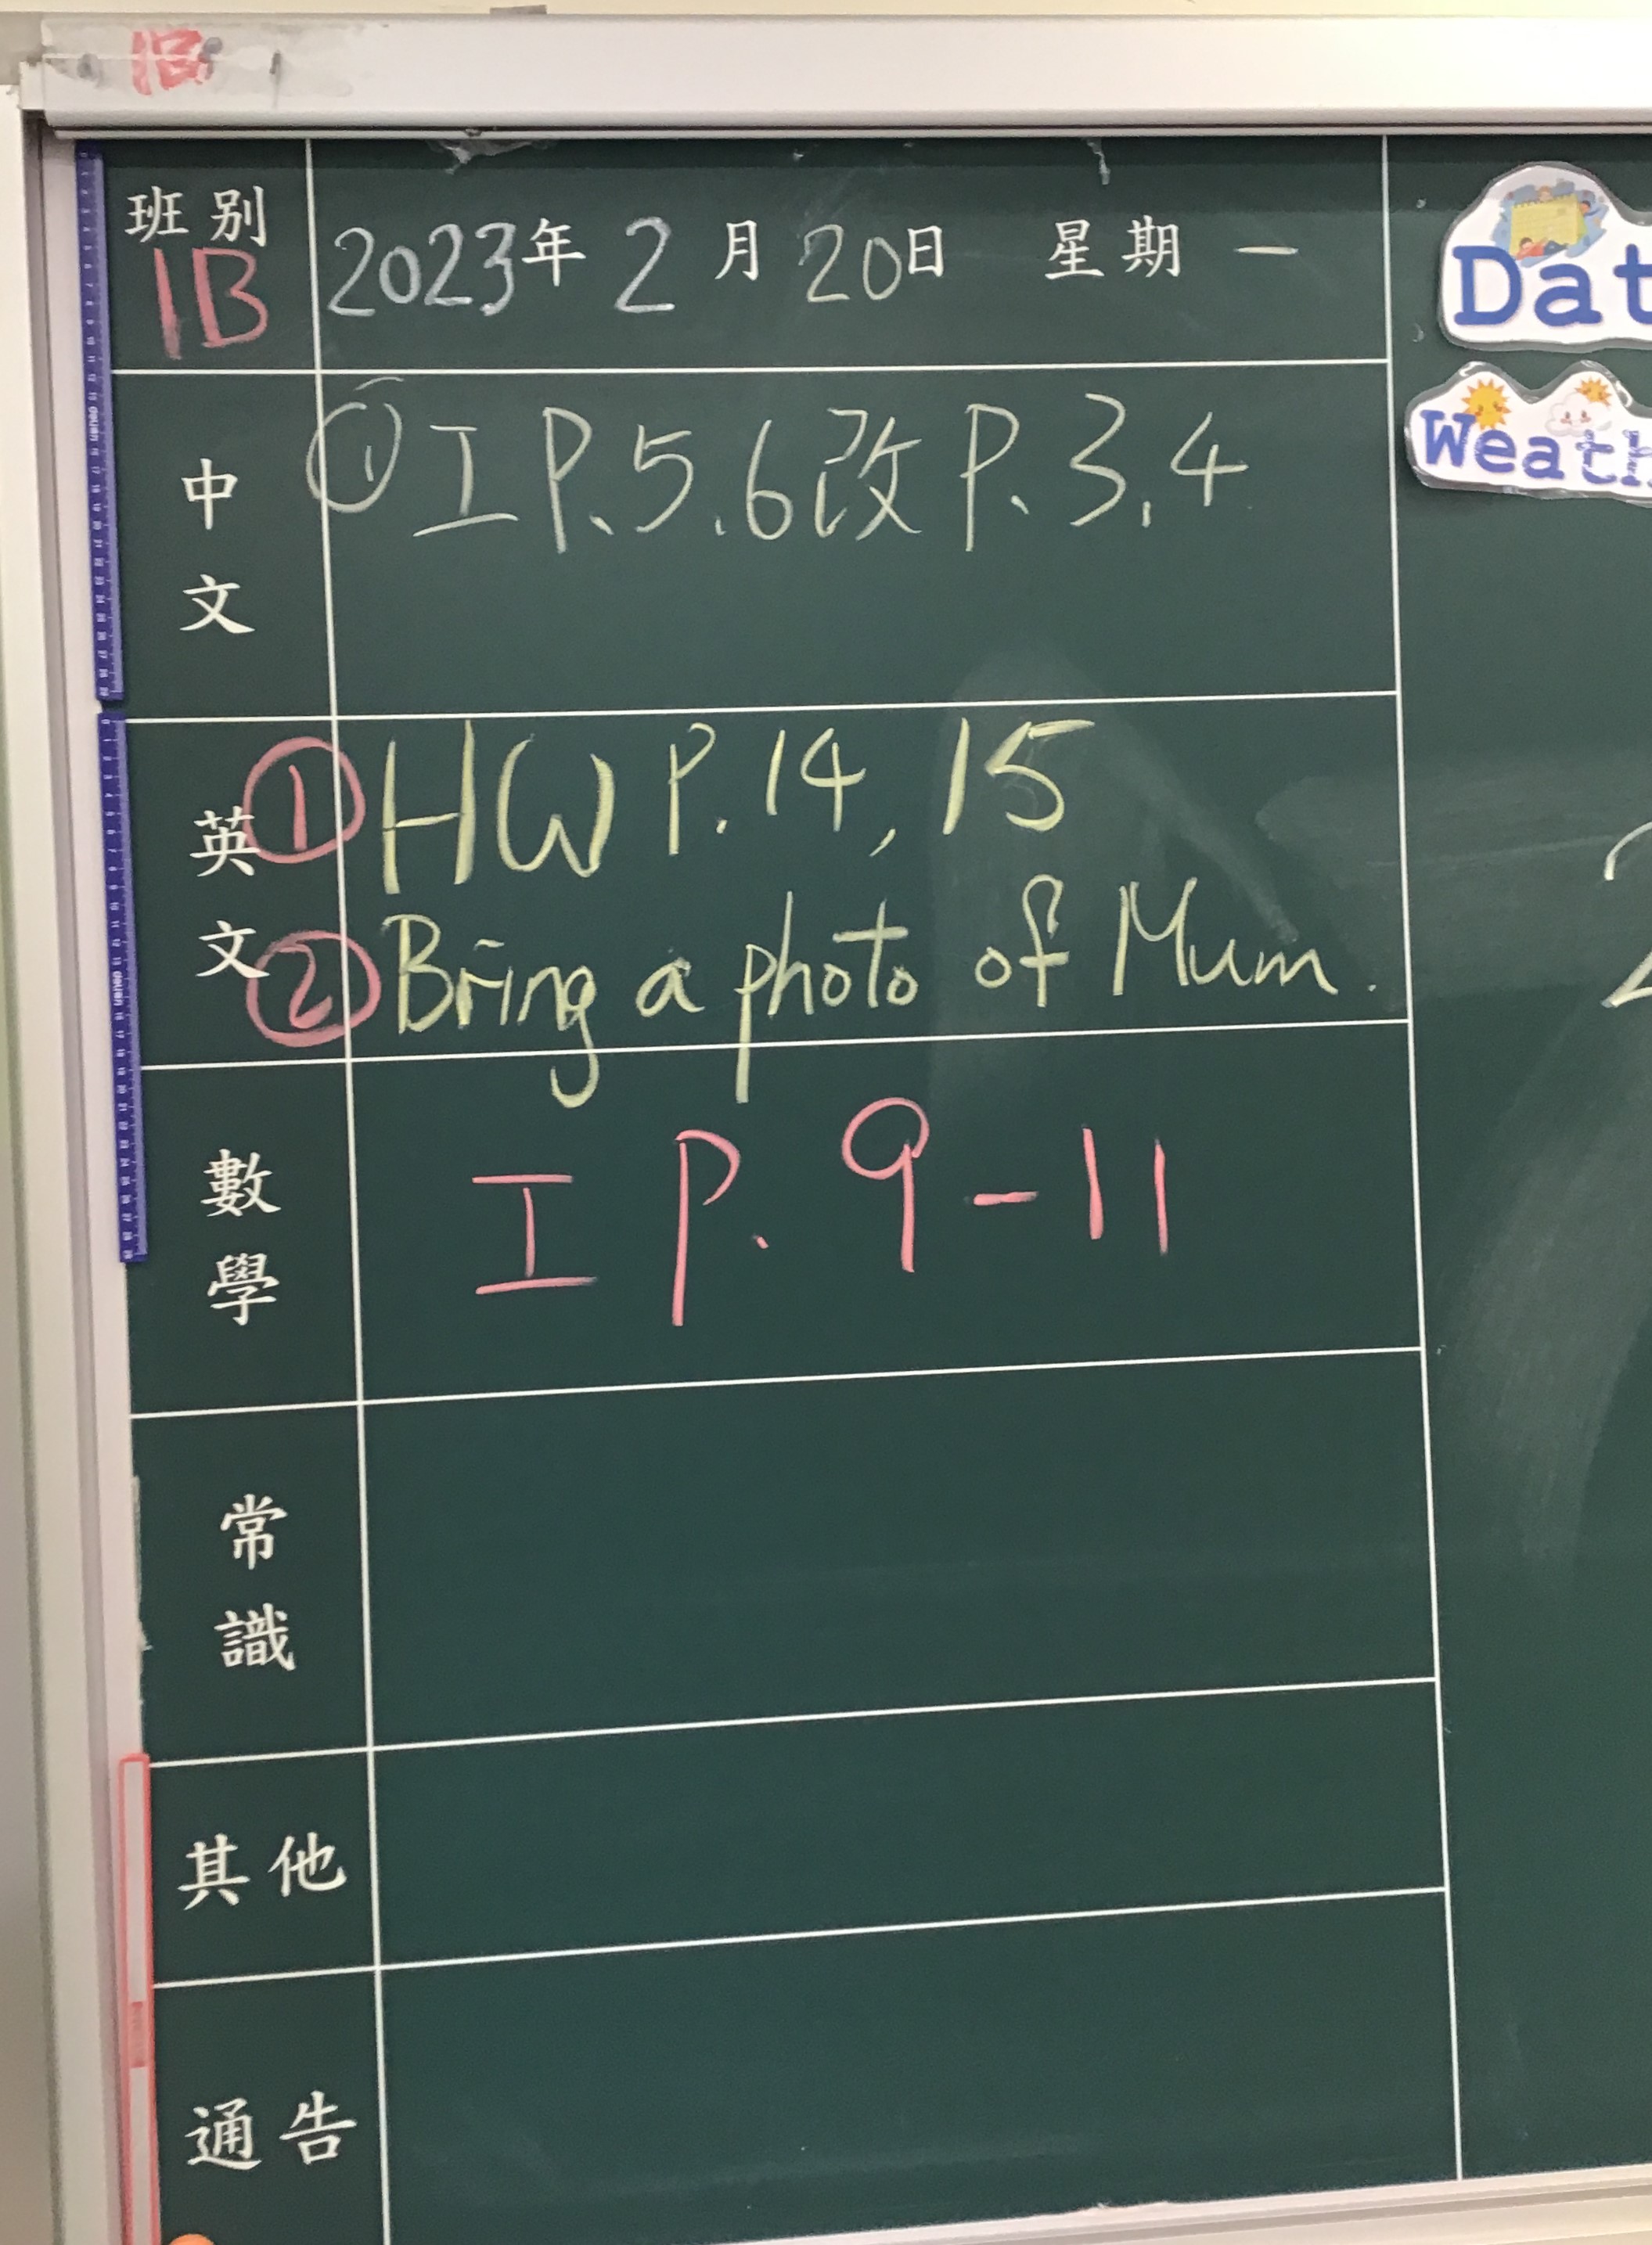 1B
班別
1B
2023年 2 月 20日 星期 一
中文
① 工 P.5.6 改 P.3.4
英文
① HW P.14, 15
② Bring a photo of Mum.
數學
工 P. 9-11
常識
其他
通告
Dat
Weath
deli
deli